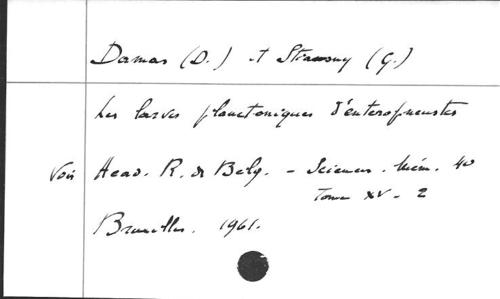 Damas (D.) et Stiasny (G.)
Les larves planctoniques d'enteropneustes
Voir Acad. R. de Belg. - Sciences. Mém. 4º
Tome XV - 2
Bruxelles. 1961.